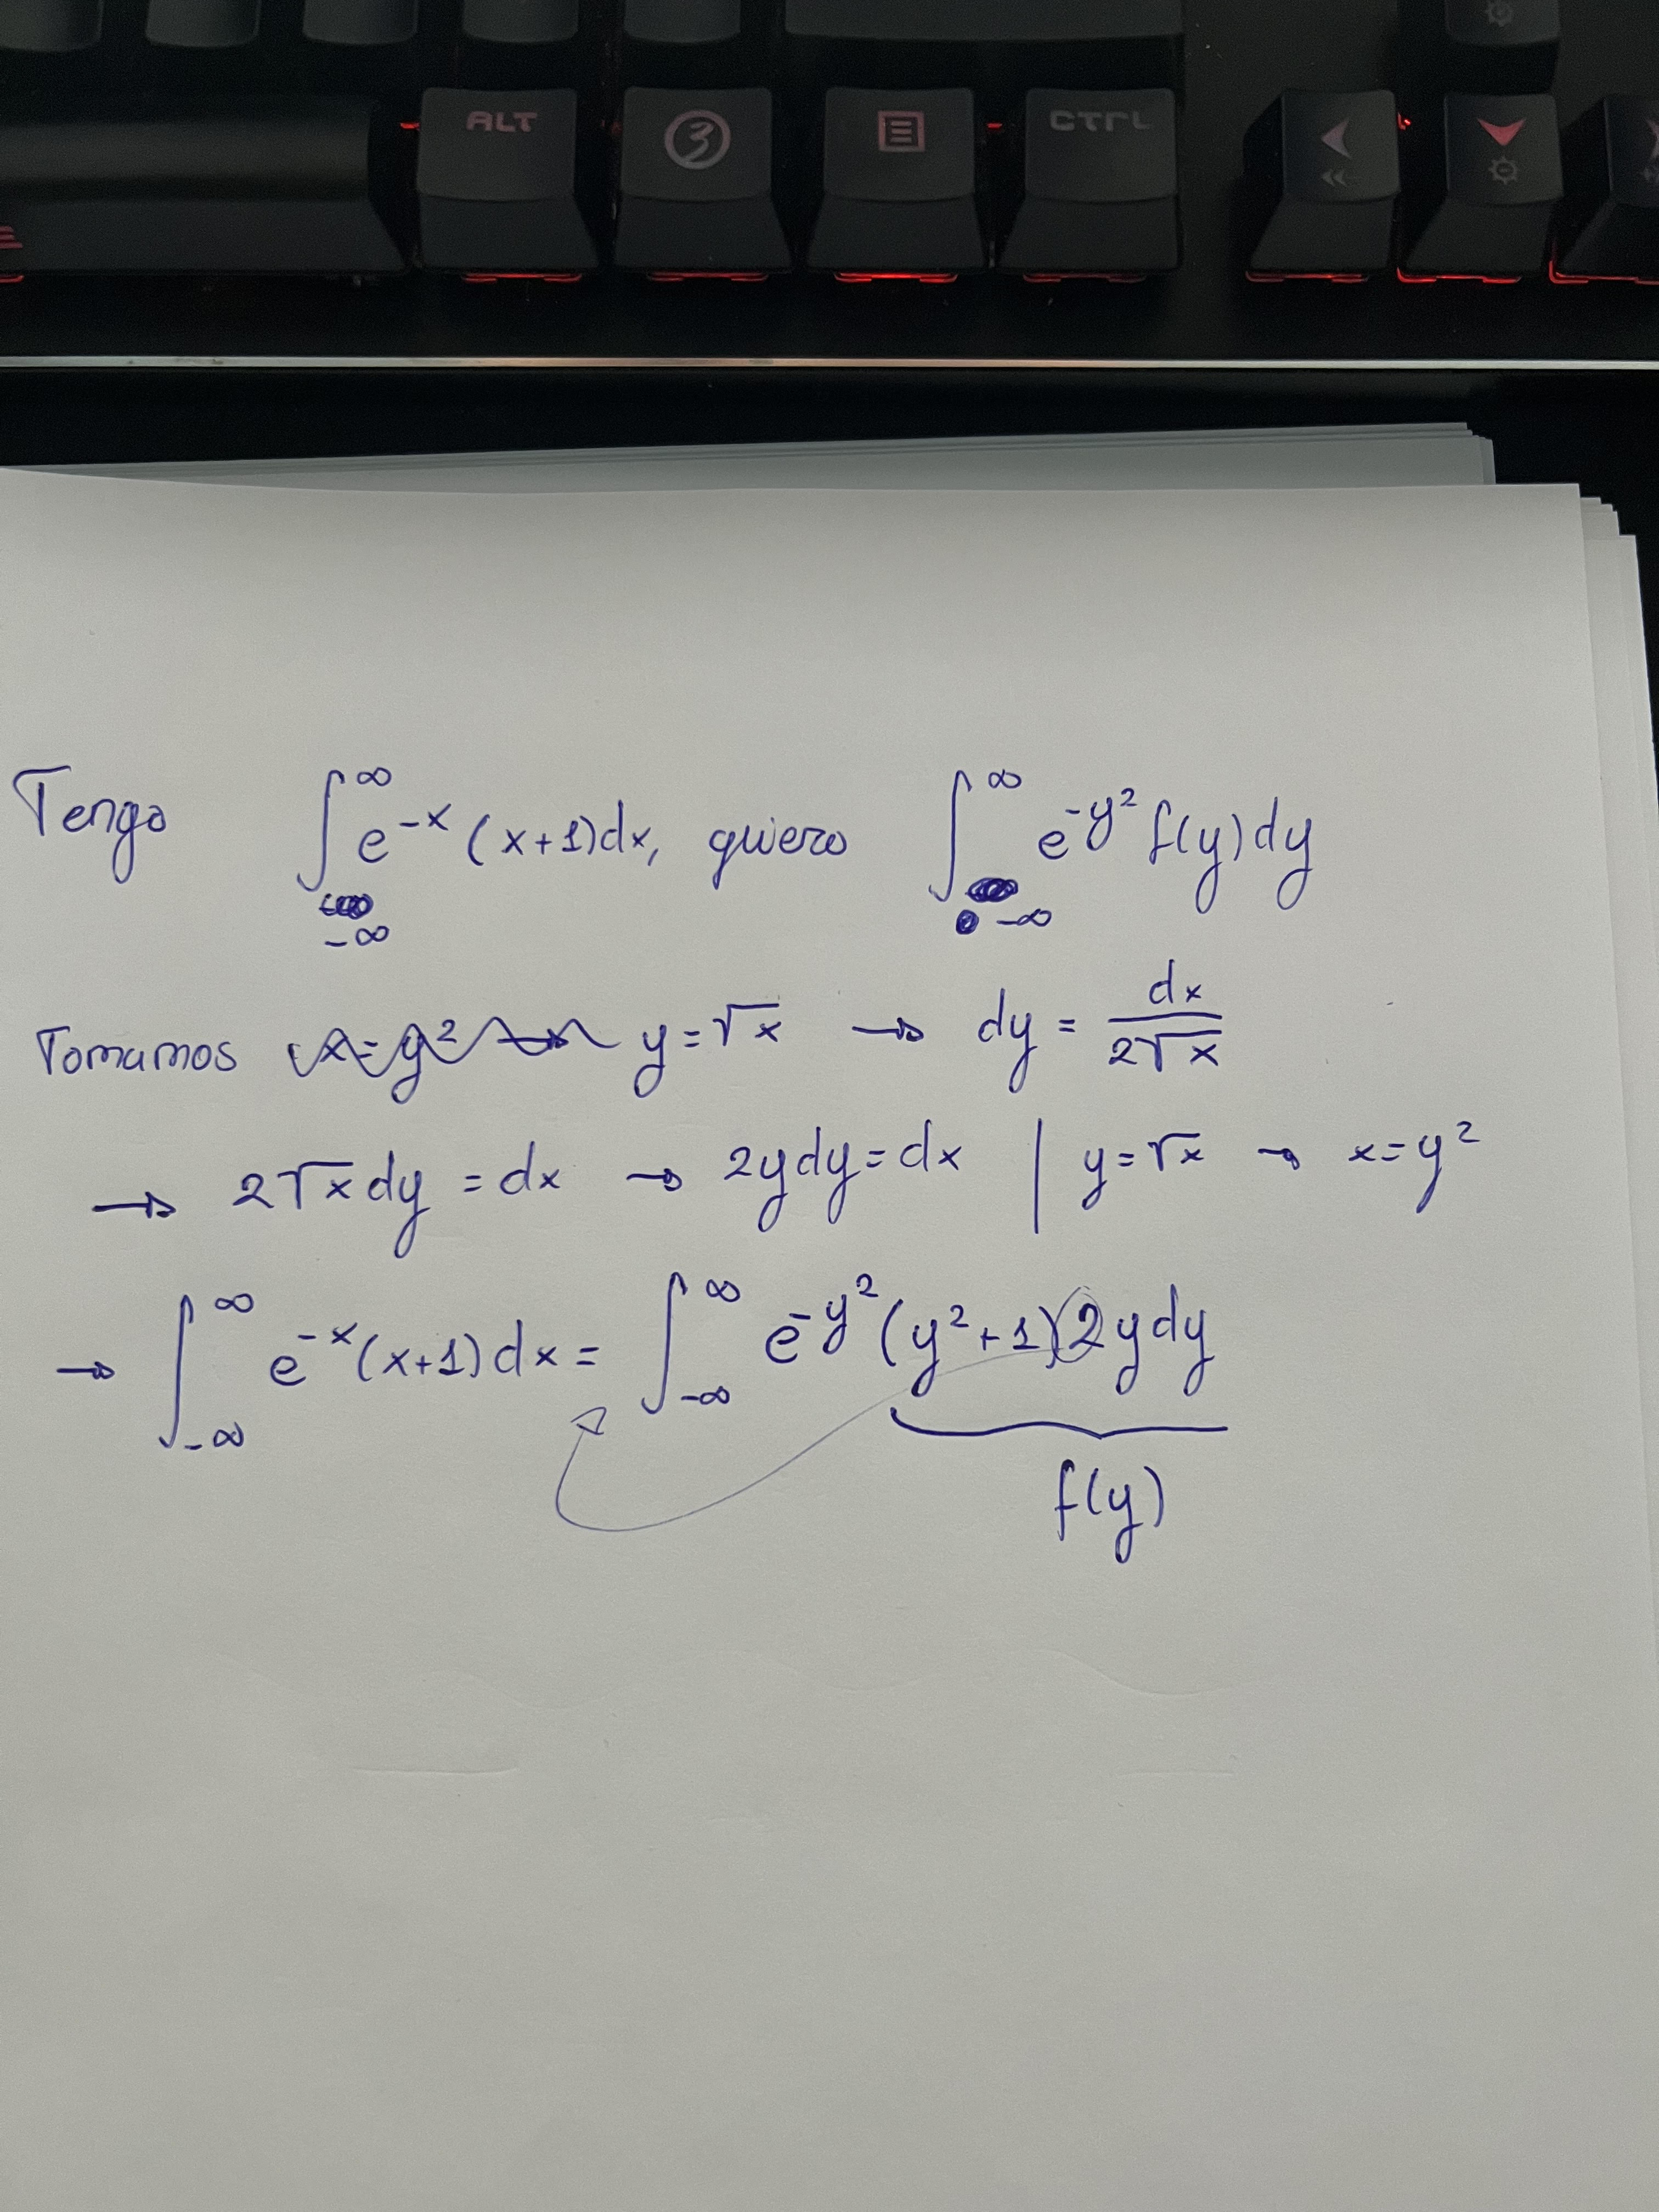 ALT CTRL
Tengo ∫_{-∞}^{∞} e^{-x} (x+1)dx, quiero ∫_{-∞}^{∞} e^{-y²} f(y)dy
Tomamos x=y² → y=√x → dy = dx/(2√x)
→ 2√x dy = dx → 2ydy=dx | y=√x → x=y²
→ ∫_{-∞}^{∞} e^{-x}(x+1)dx = ∫_{-∞}^{∞} e^{-y²} (y²+1)2ydy
f(y)